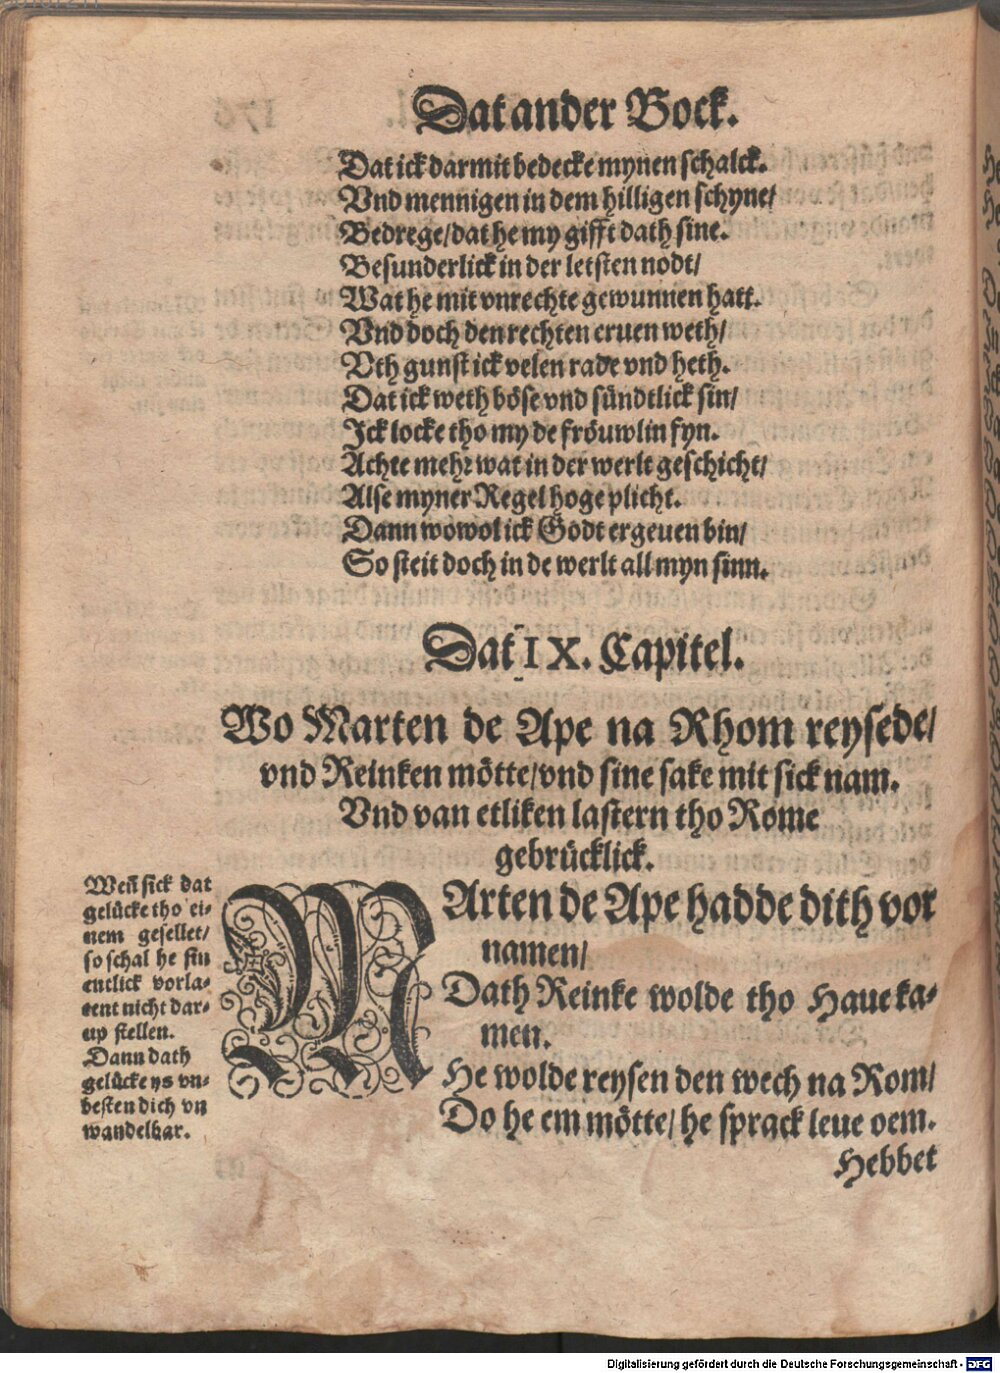 Dat ander Bock.
Dat ick darmit bedecke mynen schalck.
Vnd mennigen in dem hilligen schyne/
Bedrege/dat he my gifft dath sine.
Besunderlick in der letsten nodt/
Wat he mit vnrechte gewunnen hatt.
Vnd doch den rechten eruen weth/
Vth gunst ick velen rade vnd heth.
Dat ick weth böse vnd sündtlick sin/
Ick locke tho my de fröuwlin fyn.
Achte mehr wat in der werlt geschicht/
Alse myner Regel hoge plicht.
Dann wowol ick Godt ergeuen bin/
So steit doch in de werlt all myn sinn.
Dat IX. Capitel.
Wo Marten de Ape na Rhom reysede/
vnd Reinken mötte/vnd sine sake mit sick nam.
Vnd van etliken lastern tho Rome
gebrücklick.
Marten de Ape hadde dith vor
namen/
Dath Reinke wolde tho Haue ka-
men.
He wolde reysen den wech na Rom/
Do he em mötte/he sprack leue oem.
Weñ sick dat
gelücke tho ei-
nem gesellet/
so schal he sin
entlick vorla-
tent nicht dar-
up stellen.
Dann dath
gelücke ys vn-
besten dich vn
wandelbar.
Hebbet
Digitalisierung gefördert durch die Deutsche Forschungsgemeinschaft - DFG